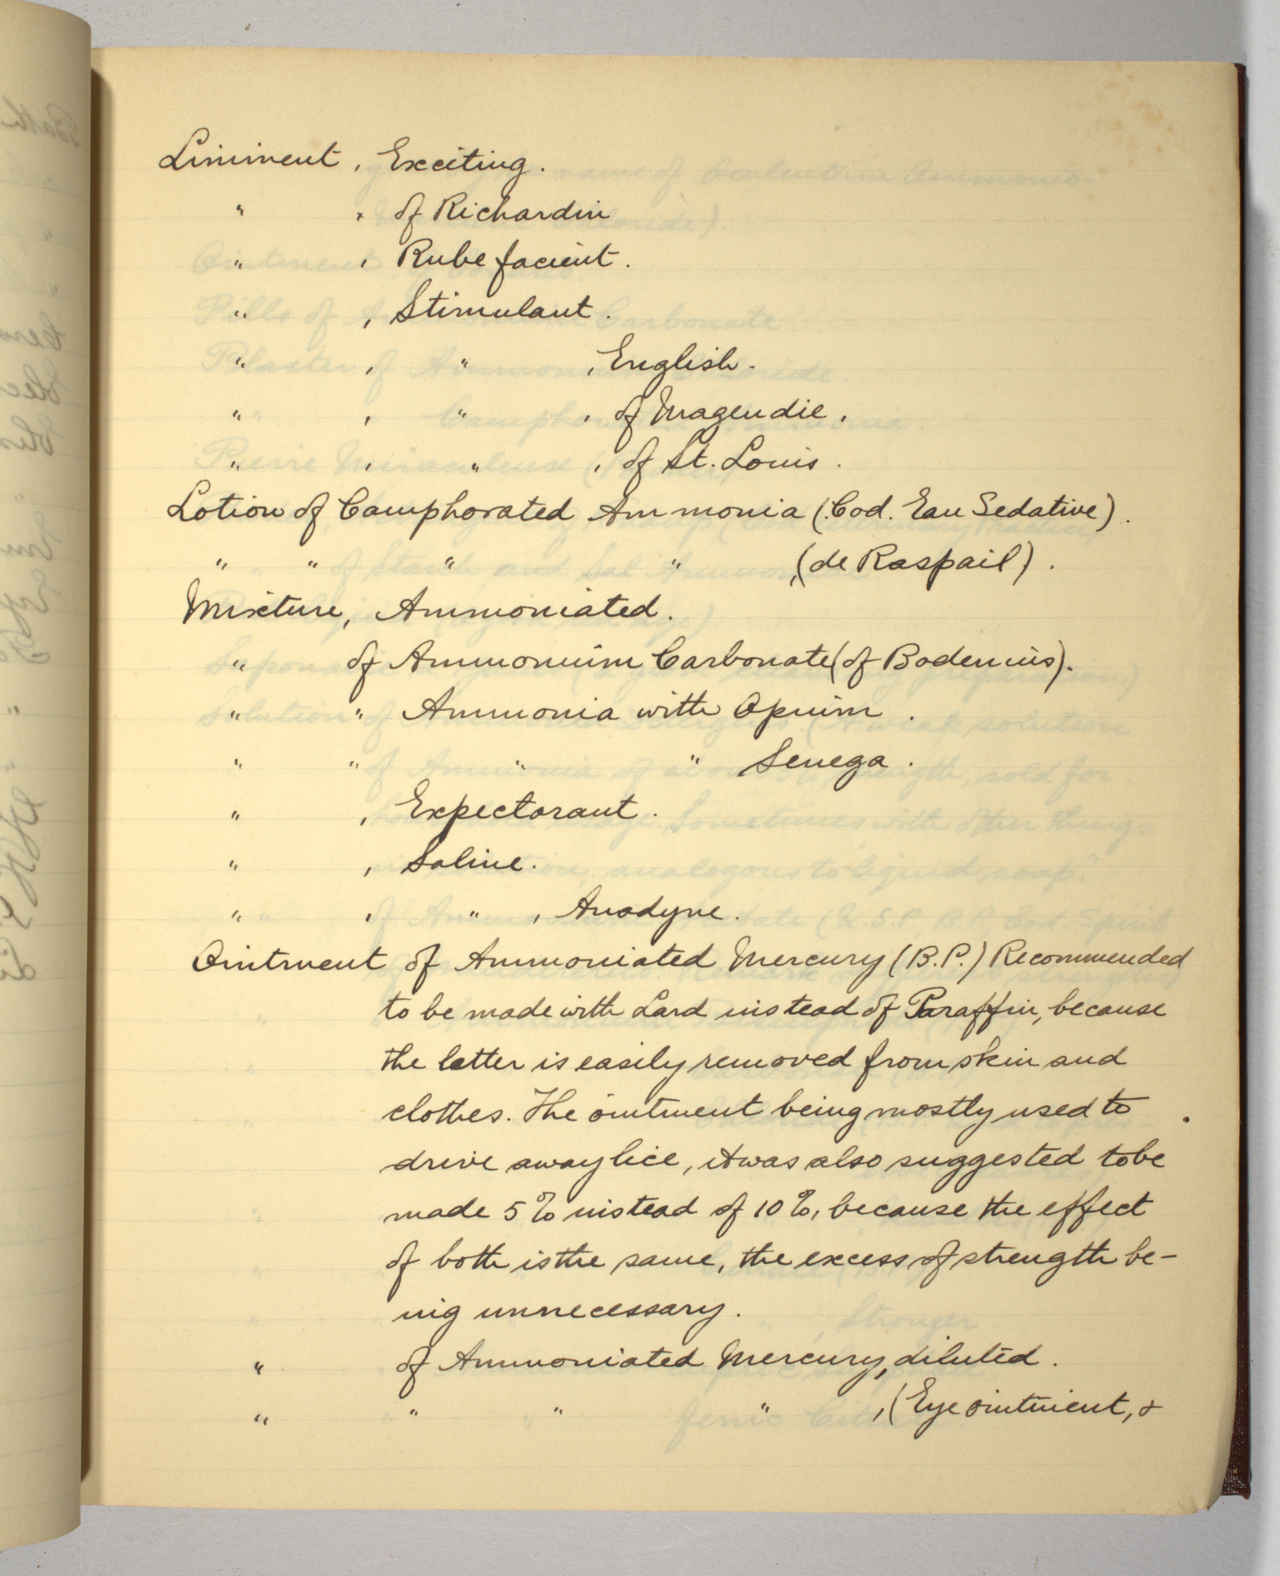 Liniment, Exciting.
" , of Richardin
" , Rubefacient.
" , Stimulant.
" , " , English.
" , " , of Magendie.
" , " , of St. Louis.
Lotion of Camphorated Ammonia (Cod. Eau Sedative).
" " " " , (de Raspail).
Mixture, Ammoniated.
" of Ammonium Carbonate (of Bodenius).
" " Ammonia with Opium.
" " " " Senega.
" , Expectorant.
" , Saline.
" , " , Anodyne.
Ointment of Ammoniated Mercury (B.P.) Recommended
to be made with Lard instead of Paraffin, because
the latter is easily removed from skin and
clothes. The ointment being mostly used to
drive away lice, it was also suggested to be
made 5% instead of 10%, because the effect
of both is the same, the excess of strength be-
ing unnecessary.
" of Ammoniated Mercury, diluted.
" " " " , (Eye ointment, &